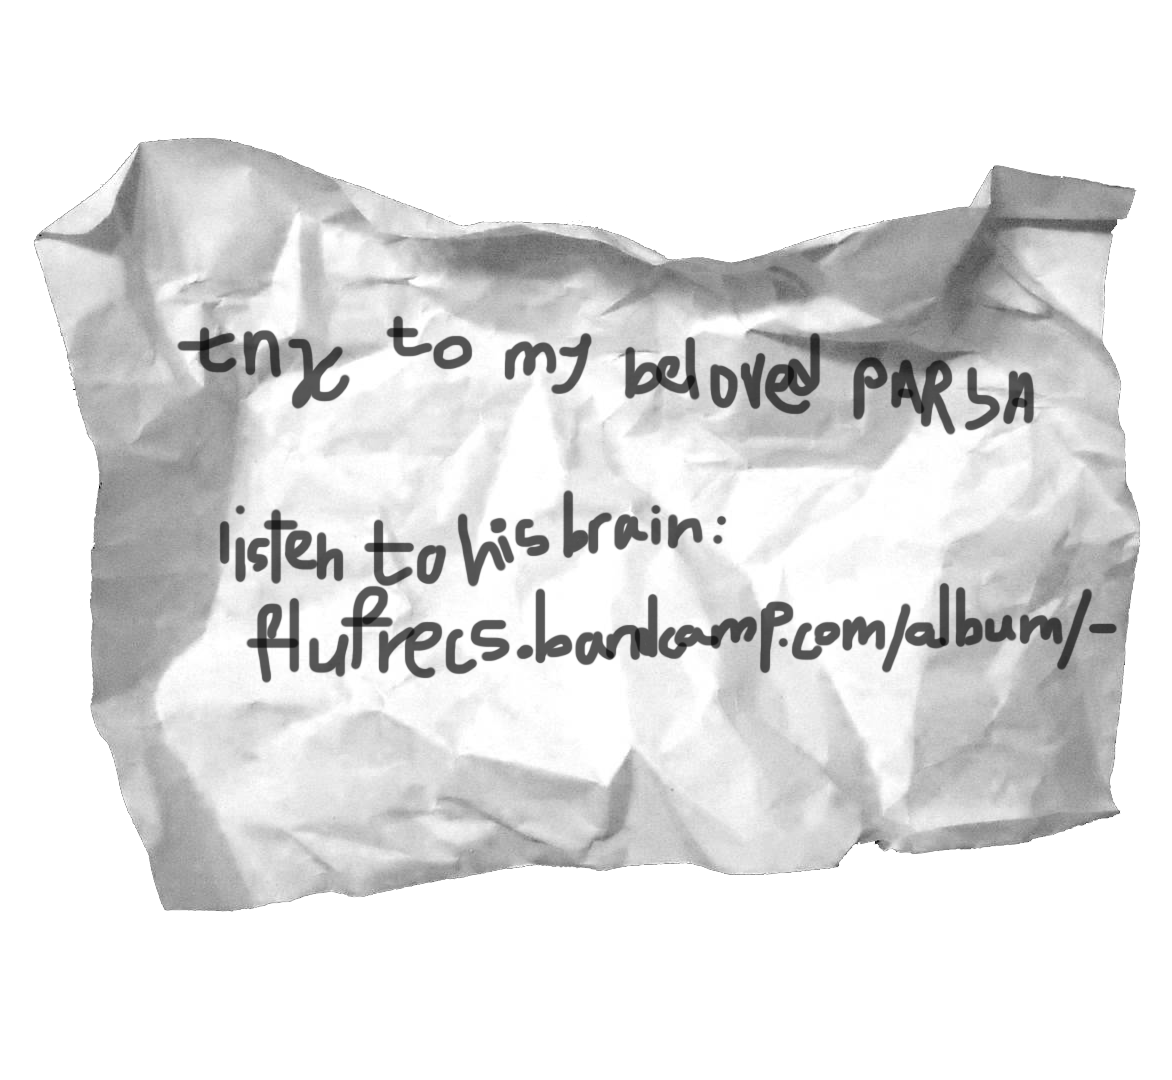 tnx to my beloved PARSA
listen to his brain:
flufrecs.bandcamp.com/album/-